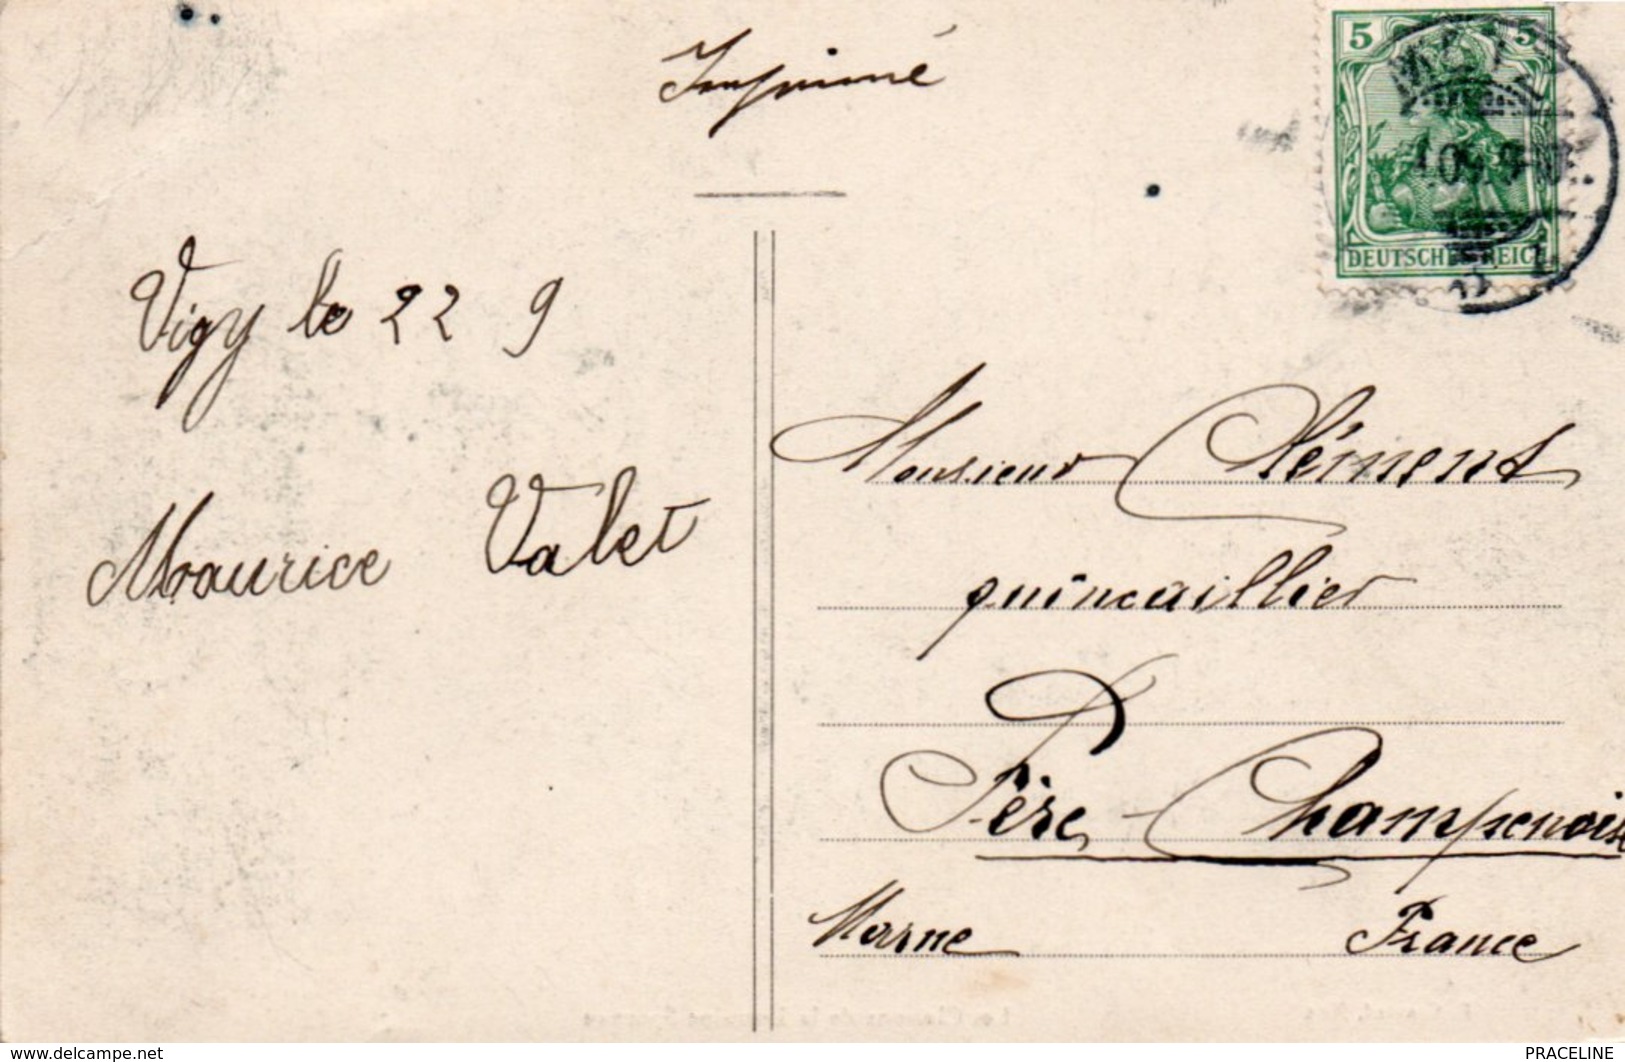 Imprimé
5 5
METZ
DEUTSCHES REICH
Vigy le 22 9
Maurice Valet
Monsieur Clément
quincaillier
à
Fère-Champenoise
Marne France
www.delcampe.net PRACELINE